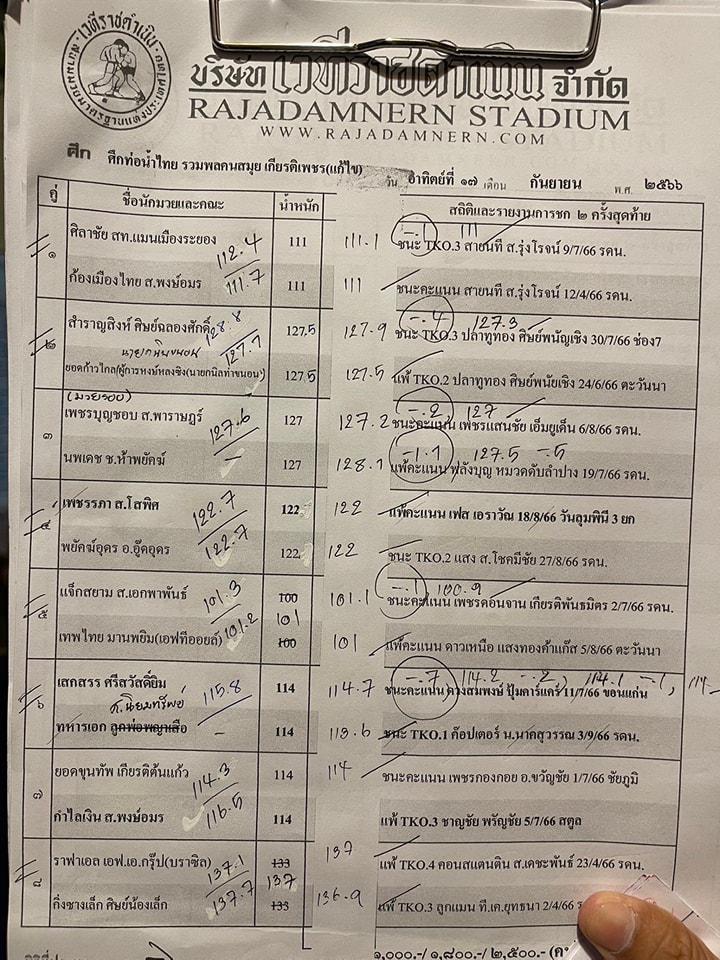 เวทีราชดำเนิน
บริษัท เวทีราชดำเนิน จำกัด
RAJADAMNERN STADIUM
WWW.RAJADAMNERN.COM
ศึก ศึกท่อน้ำไทย รวมพลคนสมุย เกียรติเพชร(แก้ไข) วัน อาทิตย์ที่ ๑๗ เดือน กันยายน พ.ศ. ๒๕๖๖
คู่ ชื่อนักมวยและคณะ น้ำหนัก สถิติและรายงานการชก ๒ ครั้งสุดท้าย
๑ ศิลาชัย สท.แมนเมืองระยอง 112.4 111 111.1 -.1 111 ชนะ TKO.3 สายนที ส.รุ่งโรจน์ 9/7/66 รดน.
ก้องเมืองไทย ส.พงษ์อมร 111.7 111 111 ชนะคะแนน สายนที ส.รุ่งโรจน์ 12/4/66 รดน.
๒ สำราญสิงห์ ศิษย์ฉลองศักดิ์ 128.8 127.5 127.9 -.4 127.3 ชนะ TKO.3 ปลาทูทอง ศิษย์พนัญเชิง 30/7/66 ช่อง7
ยอดก้าวไกล(ผู้การหงษ์หลงซิง(นายกนิลท่าขนอน) 127.7 127.5 127.5 แพ้ TKO.2 ปลาทูทอง ศิษย์พนัยเชิง 24/6/66 ตะวันนา
(มวยรอบ)
๓ เพชรบุญชอบ ส.พาราษฎร์ 127.6 127 127.2 -.2 127 ชนะคะแนน เพชรแสนชัย เอ็มยูเด็น 6/8/66 รดน.
นพเดช ช.ห้าพยัคฆ์ - 127 128.1 -1.1 127.5 -.5 แพ้คะแนน พลังบุญ หมวดดับลำปาง 19/7/66 รดน.
๔ เพชรรภา ส.โสพิศ 122.7 122 122 แพ้คะแนน เฟส เอราวัณ 18/8/66 วันลุมพินี 3 ยก
พยัคฆ์อุดร อ.อู๊ดอุดร 122.7 122 122 ชนะ TKO.2 แสง ส.โชคมีชัย 27/8/66 รดน.
๕ แจ็กสยาม ส.เอกพาพันธ์ 101.3 100 101.1 -.1 100.9 ชนะคะแนน เพชรดอนจาน เกียรติพันธมิตร 2/7/66 รดน.
เทพไทย มานพยิม(เอฟทีออยล์) 101.2 101 100 101 แพ้คะแนน ดาวเหนือ แสงทองค้าแก๊ส 5/8/66 ตะวันนา
๖ เสกสรร ศรีสวัสดิ์ยิม 115.8 114 114.7 -.7 114.2 -.2, 114.1 -.1, 114 ชนะคะแนน ดวงสมพงษ์ ปุ้มคาร์แคร์ 11/7/66 ขอนแก่น
ทหารเอก ลูกพ่อพญาเสือ - 114 113.6 ชนะ TKO.1 ค๊อปเตอร์ น.นาคสุวรรณ 3/9/66 รดน.
๗ ยอดขุนทัพ เกียรติต้นแก้ว 114.3 114 114 ชนะคะแนน เพชรกองกอย อ.ขวัญชัย 1/7/66 ชัยภูมิ
กำไลเงิน ส.พงษ์อมร 116.5 114 แพ้ TKO.3 ชาญชัย พรัญชัย 5/7/66 สตูล
๘ ราฟาเอล เอฟ.เอ.กรุ๊ป(บราซิล) 137.1 133 137 137 แพ้ TKO.4 คอนสแตนติน ส.เดชะพันธ์ 23/4/66 รดน.
กิ่งซางเล็ก ศิษย์น้องเล็ก 137.7 133 136.9 แพ้ TKO.3 ลูกแมน ที.เค.ยุทธนา 2/4/66
๑,๐๐๐.-/ ๑,๘๐๐.-/ ๒,๕๐๐.-